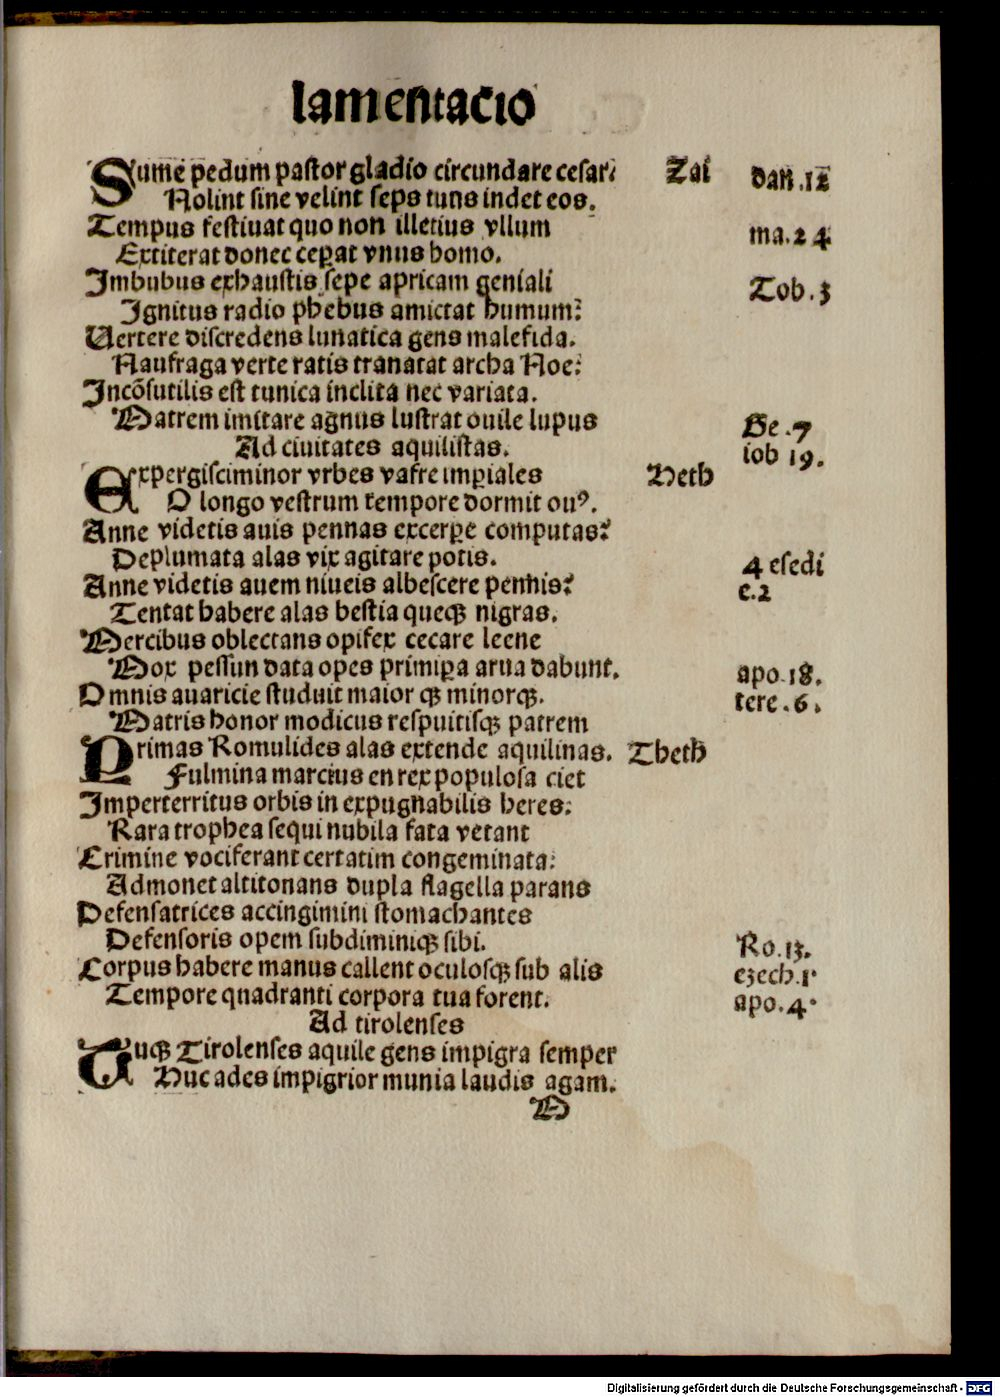 lamentacio
Sume pedum pastor gladio circundare cesar: Zai dañ .12
Nolint sine velint seps tuns indet eos.
Tempus festiuat quo non illetius vllum ma.24
Extiterat donec ceꝑat vnus homo.
Imbubus exhaustis sepe apricam geniali Tob.3
Ignitus radio phebus amictat humum:
Uertere discredens lunatica gens malefida.
Naufraga verte ratis tranatat archa Noe:
Incōsutilis est tunica inclita nec variata.
Matrem imitare agnus lustrat ouile lupus Ge.7
Ad ciuitates aquilistas. iob 19.
Expergisciminor vrbes vafre imꝑiales Heth
O longo vestrum tempore dormit ouꝰ.
Anne videtis auis pennas excerpe computas?
Deplumata alas vix agitare potis. 4 esedi
Anne videtis auem niueis albescere pennis? c.2
Tentat habere alas bestia queqꝫ nigras.
Mercibus oblectans opifex cecare leene
Mox pessun data opes primiꝑa arua dabunt. apo.18.
Omnis auaricie studuit maior qꝫ minorqꝫ. tere.6.
Matris honor modicus respuitisqꝫ patrem
Primas Romulides alas extende aquilinas. Theth
Fulmina marcius en rex populosa ciet
Imperterritus orbis in expugnabilis heres:
Rara trophea sequi nubila fata vetant
Crimine vociferant certatim congeminata:
Admonet altitonans dupla flagella parans
Defensatrices accingimini stomachantes
Defensoris opem subdiminiqꝫ sibi. Ro.13.
Corpus habere manus callent oculosqꝫ sub alis ezech.1
Tempore quadranti corpora tua forent. apo.4
Ad tirolenses
Tuqꝫ Tirolenses aquile gens impigra semper
Huc ades impigrior munia laudis agam.
M
Digitalisierung gefördert durch die Deutsche Forschungsgemeinschaft - DFG